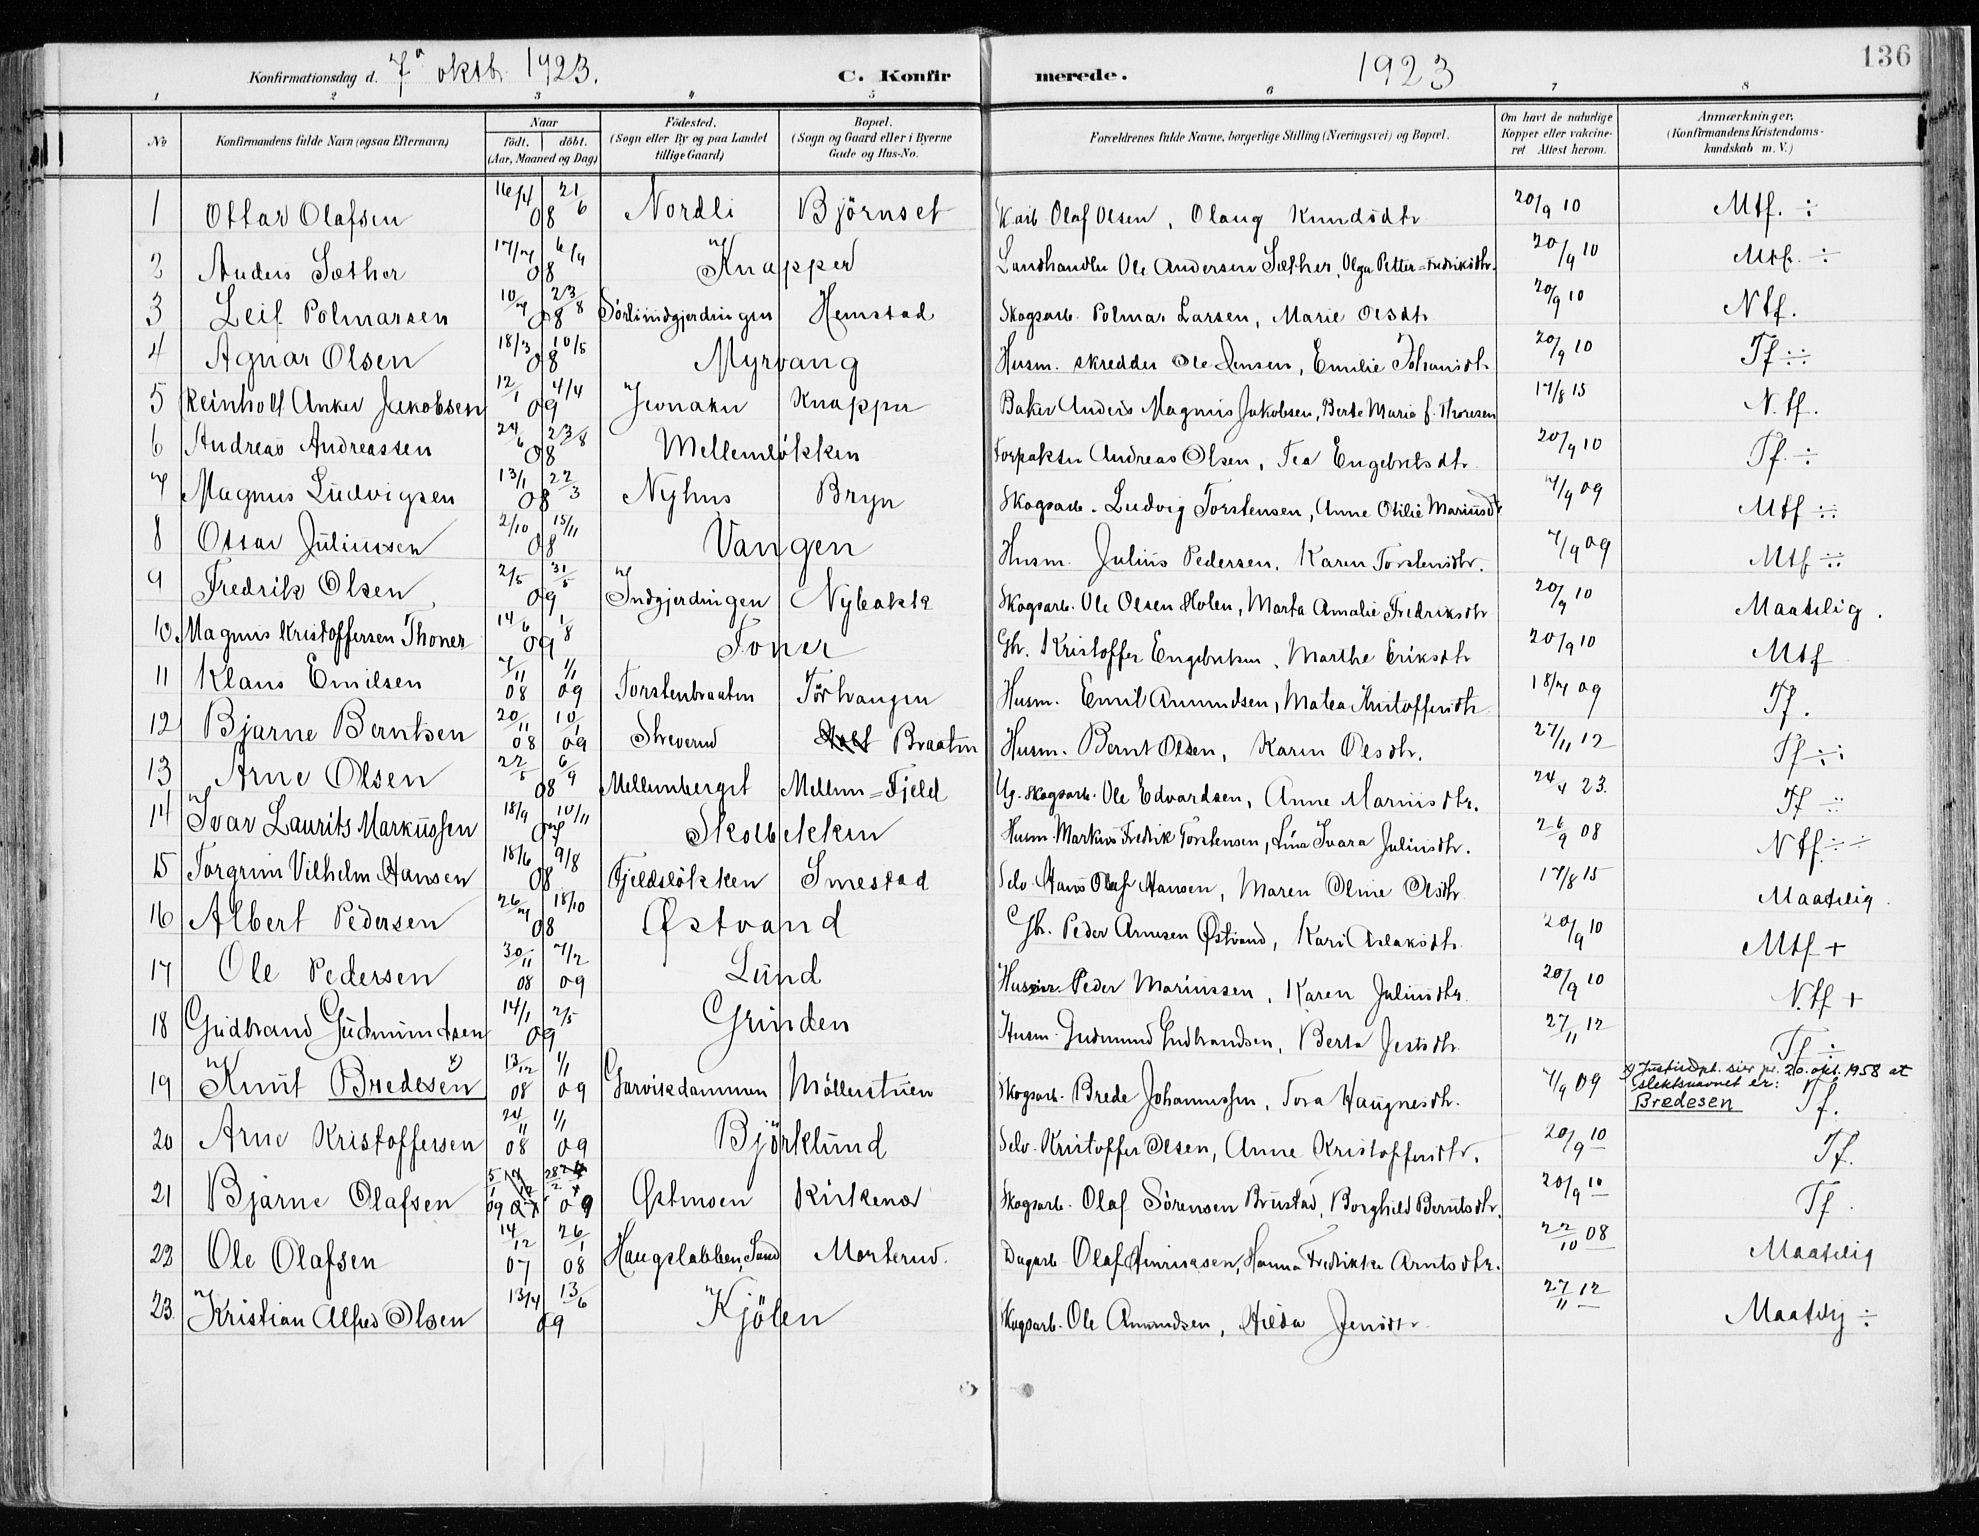 136
Konfirmationsdag d. 7de oktb. 1923. C. Konfir merede. 1923
1 2 3 4 5 6 7 8
No Konfirmandens fulde Navn (ogsaa Efternavn) Naar født. døbt. (Aar, Maaned og Dag) Fødested. (Sogn eller By og paa Landet tillige Gaard) Bopæl. (Sogn og Gaard eller i Byerne Gade og Hus-No. Forældrenes fulde Navne, borgerlige Stilling (Næringsvei) og Bopæl. Om havt de naturlige Kopper eller vakcineret Attest herom. Anmærkninger. (Konfirmandens Kristendomskundskab m. V.)
1 Ottar Olafsen 16/4 21/6 08 Nordli Björnset Olaf Olsen, Olaug Knudsdtr 20/9 10 Mtf. ÷
2 Anders Sæther 17/7 6/9 08 Knapper Landhandler Ole Andersen Sæther, Olga Petter=Fredriksdtr. 20/9 10 Mtf. ÷
3 Leif Polmarsen 10/7 23/8 08 Sörliindgjerdingen Hemstad Skogsarb. Polmar Larsen, Marie Olsdtr 20/9 10 Ntf.
4 Agnar Olsen 18/3 10/5 08 Myrvang Husm. skredder Ole Jensen, Emilie Johansdtr 20/9 10 Tf ÷÷
5 Reinholt Anker Jakobsen 12/1 4/4 09 Jevnaker Knapper Baker Anders Magnus Jakobsen, Berte Marie f. Thoresen 17/8 15 N.tf.
6 Andreas Andreassen 24/6 23/8 08 Mellemlökken Forpakter Andreas Olsen, Tea Engebretsdtr. 20/9 10 Tf. ÷
7 Magnus Ludvigsen 13/1 22/3 08 Nyhus Bryn Skogsarb. Ludvig Torstensen, Anne Otilie Mariusdtr 7/9 09 Mtf ÷÷
8 Ottar Juliussen 2/10 15/11 08 Vangen Husm. Julius Pedersen, Karen Torstensdtr. 7/9 09 Mtf ÷÷
9 Fredrik Olsen 2/5 31/5 09 Indgjerdingen Nybakk Skogsarb. Ole Olsen Holen, Marta Amalie Fredriksdtr 20/9 10 Maatelig.
10 Magnus Kristoffersen Thoner 14/6 1/8 09 Toner Gbr. Kristoffer Engebretsen, Marthe Eriksdtr 20/9 10 Mtf
11 Klaus Emilsen 7/11 08 1/1 09 Torstenbraaten Husm. Emil Amundsen, Matea Kristoffersdtr 18/7 09 Tf.
12 Bjarne Berntsen 20/11 08 10/1 09 Streverud Braaten Husm. Bernt Olsen, Karen Olsdtr. 27/11 12 Tf ÷÷
13 Arne Olsen 22/5 6/9 08 Mellemberget Mellem=Fjeld Ug. skogsarb. Ole Edvardsen, Anne Mariusdtr. 24/4 23. Tf ÷÷
14 Ivar Laurits Markussen 18/9 10/11 07 Skolbekken Husm. Markus Fredrik Torstensen, Lina Ivara Juliusdtr. 26/9 08 Ntf ÷÷
15 Torgrim Vilhelm Hansen 18/6 9/8 08 Fjeldslökken Smestad Selv. Hans Olaf Hansen, Maren Oline Olsdtr 17/8 15 Maatelig.
16 Albert Pedersen 26/7 18/10 08 Østvand Gbr. Peder Arnesen Østvand, Kari Aslaksdtr. 20/9 10 Mtf +
17 Ole Pedersen 30/11 08 7/2 09 Lund Husm. Peder Mariussen, Karen Juliusdtr. 20/9 10 N.tf +
18 Gudbrand Gudmundsen 14/1 2/5 09 Grinden Husm. Gudmund Gudbrandsen, Berta Jestsdtr. 27/11 12 Tf ÷
19 Knut Bredesen x) 13/12 08 1/1 09 Garvikdammen Möllerstuen Skogsarb. Brede Johannessen, Tora Haugnesdtr. 7/9 09 x) Justisdpt. sier pr. 20. okt. 1958 at slektsnavnet er: Bredesen Tf.
20 Arne Kristoffersen 24/11 08 1/1 09 Björklund Selv. Kristoffer Olsen, Anne Kristoffersdtr. 20/9 10 Tf.
21 Bjarne Olafsen 5/1 09 28/2 09 Østmoen Kirkenær Skogsarb. Olaf Sörensen Brustad, Borghild Berntsdtr. 20/9 10 Tf.
22 Ole Olafsen 14/12 07 26/1 08 Haugslabben, Sand Morterud. Dagarb. Olaf Henriksen, Hanna Fredrikke Arntsdtr. 22/10 08 Maatelig
23. Kristian Alfred Olsen 13/4 13/6 09 Kjölen Skogsarb. Ole Amundsen, Hilda Jensdtr. 27/11 12 Maatelig ÷